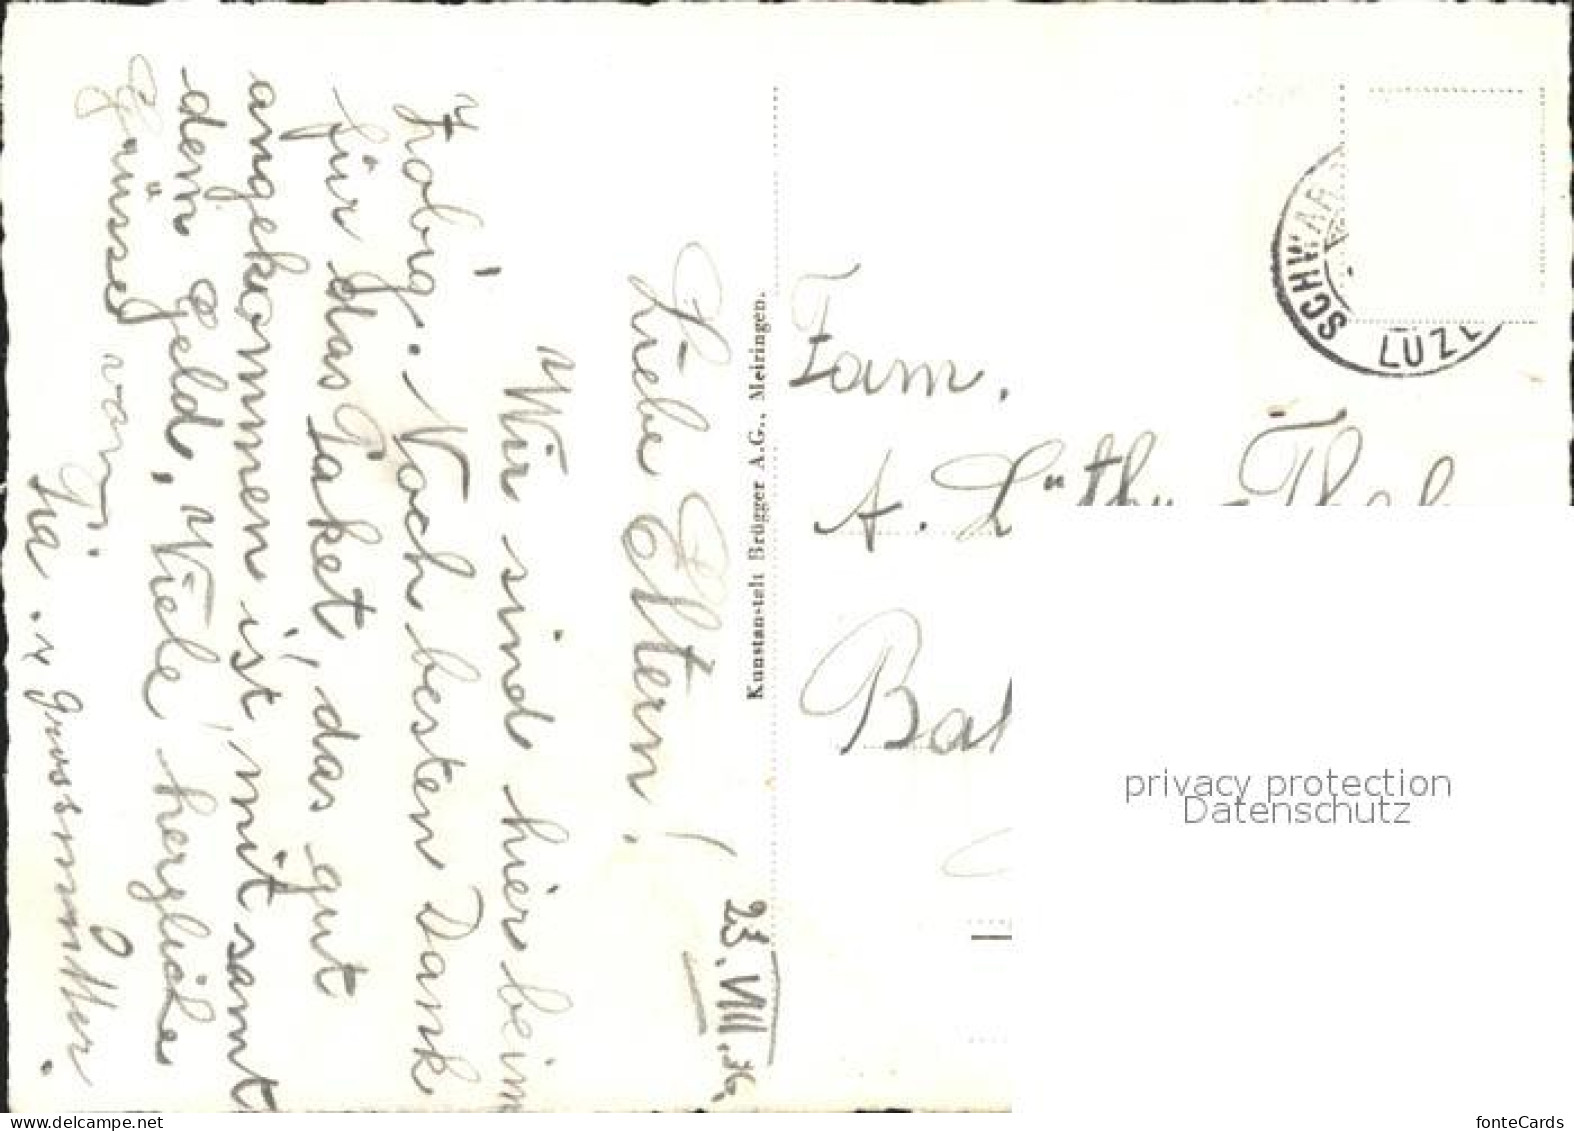 23. VIII. 36.
Liebe Eltern!
Wir sind hier beim
Zobig. Noch besten Dank
für das Paket, das gut
angekommen ist, mitsamt
dem Geld. Viele herzliche
Grüsse von
Pia. u. Grossmutter.
Kunstanstalt Brügger A.G., Meiringen.
SCHWAR
LUZE
Fam.
A. Lüthy-
Bal
privacy protection
Datenschutz
www.delcampe.net
fonteCards